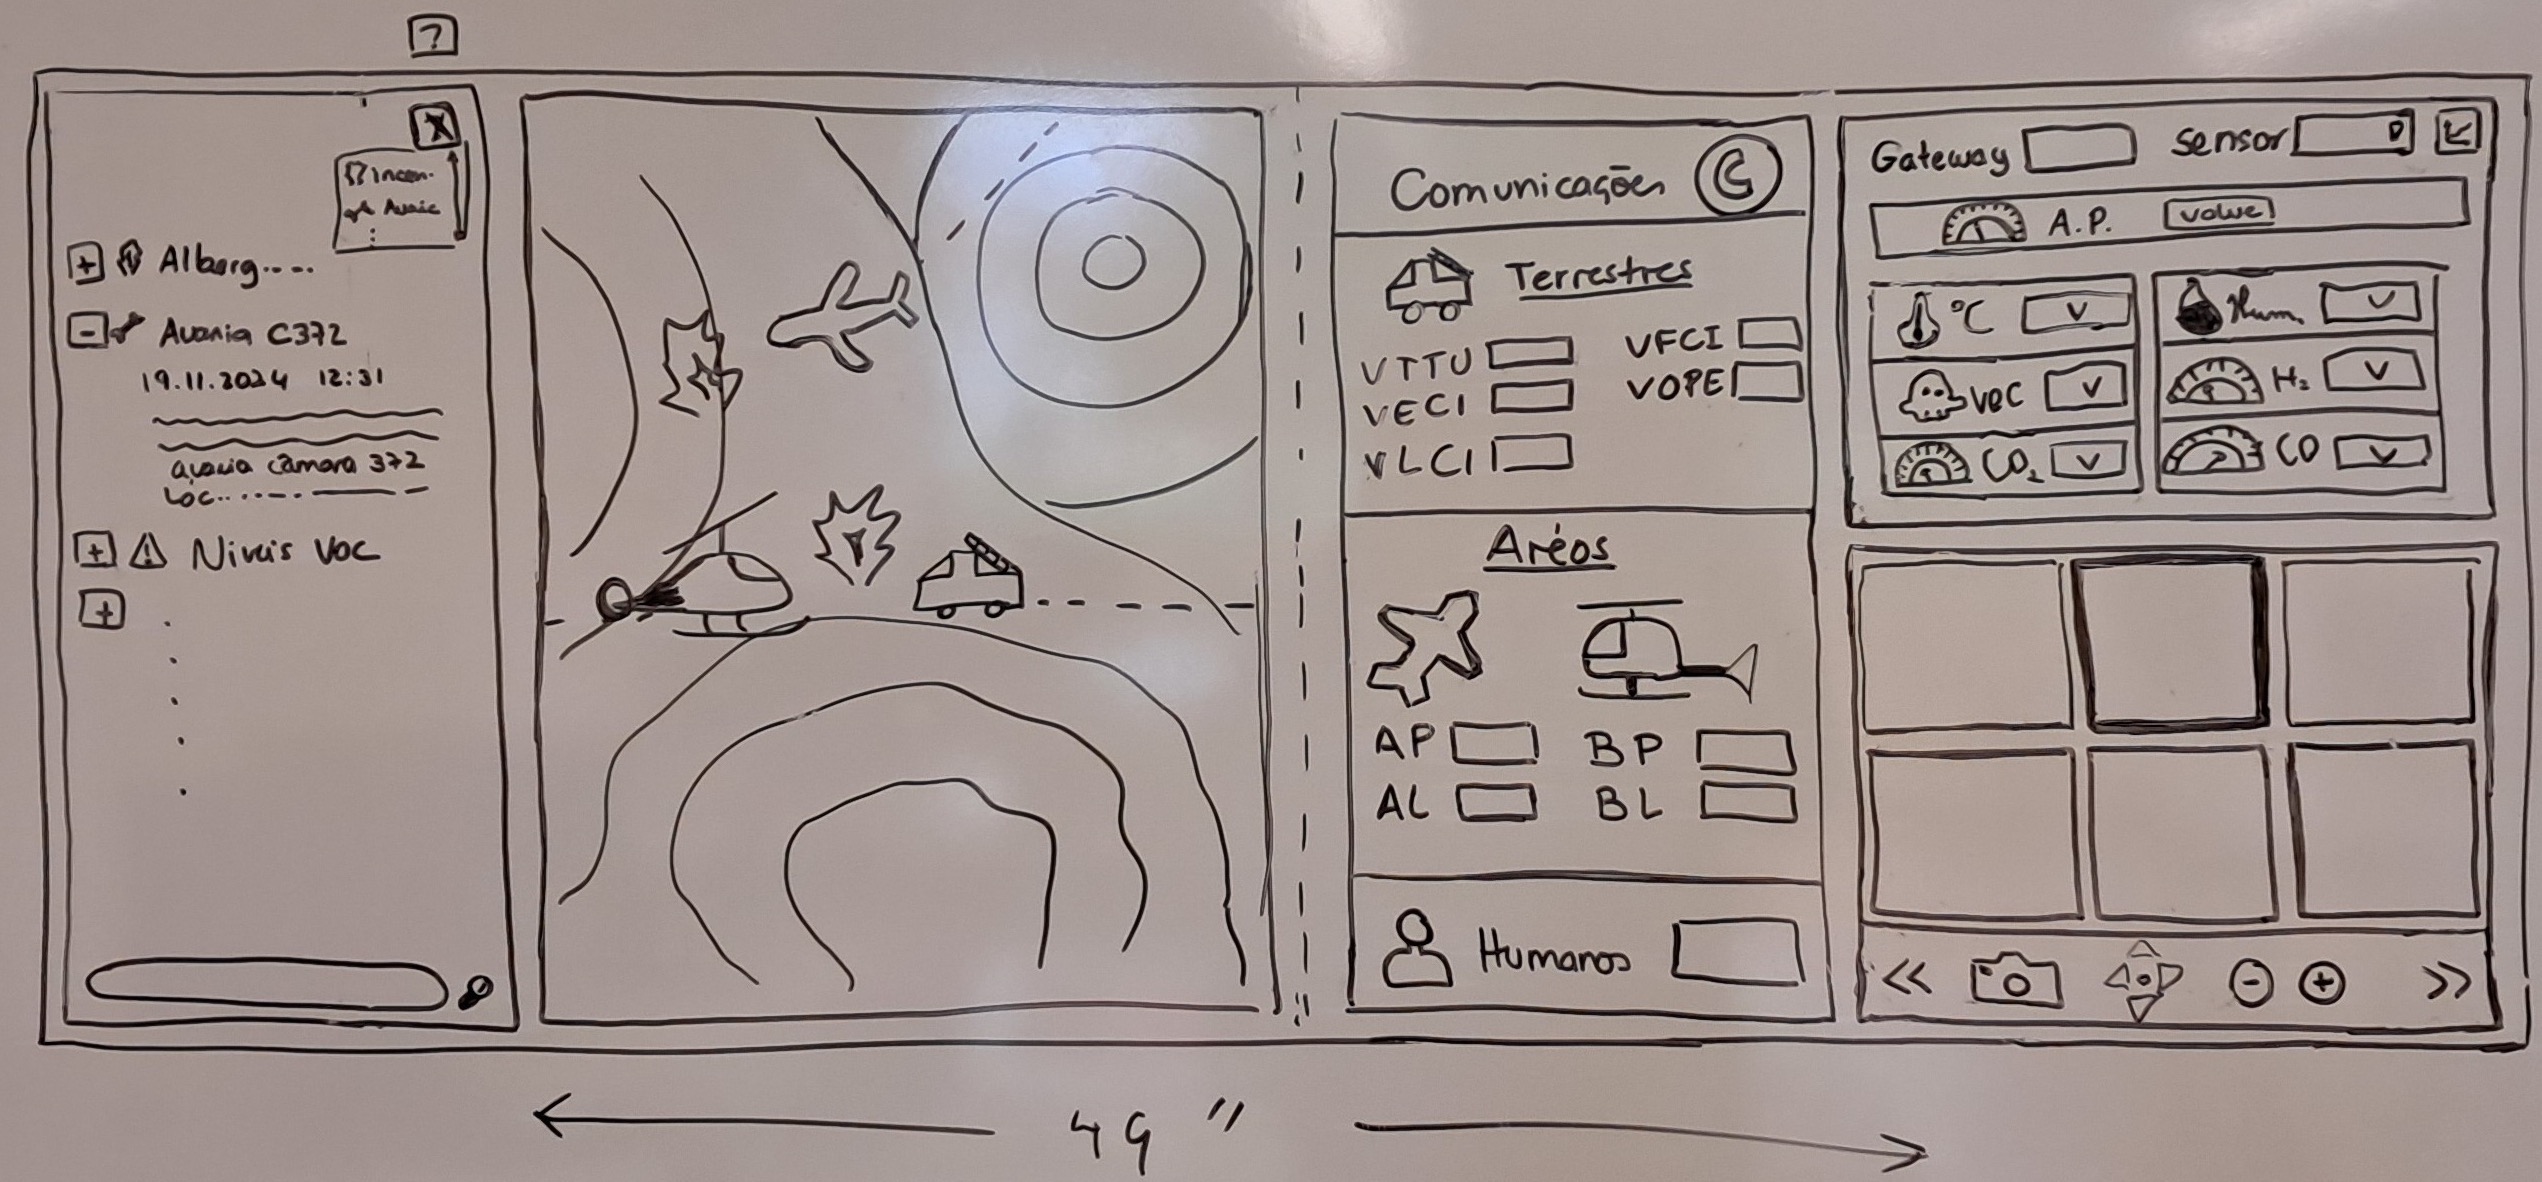 ?
X
Incen.
Avaric
+ Alberg.....
- Avaria C372
19.11.2024 12:31
avaria câmara 372
Loc.
+ ! Niveis Voc
+
Comunicações
Terrestres
VTTU
VFCI
VECI
VOPE
VLCI
Aréos
AP
BP
AL
BL
Humanos
Gateway
Sensor
A.P.
value
°C V
Hum. V
VOC V
H₂ V
CO₂ V
CO V
<< - + >>
49"